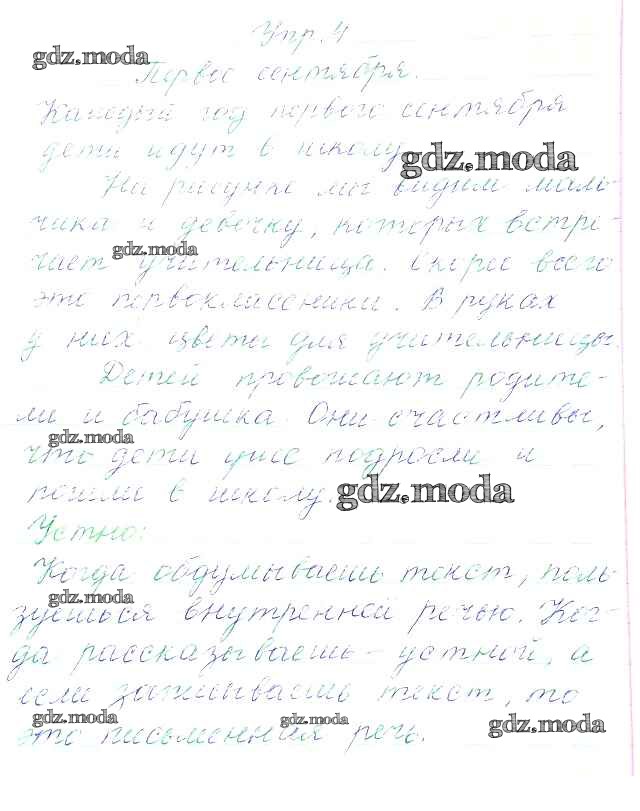 Упр. 4
gdz.moda
Первое сентября.
Каждый год первого сентября
дети идут в школу.
gdz.moda
На рисунке мы видим маль-
чика и девочку, которых встре-
gdz.moda
чает учительница. Скорее всего
это первоклассники. В руках
у них цветы для учительницы.
Детей провожают родите-
ли и бабушка. Они счастливы,
gdz.moda
что дети уже подросли и
пошли в школу.
gdz.moda
Устно:
Когда обдумываешь текст, поль-
gdz.moda
зуешься внутренней речью. Ког-
да рассказываешь - устной, а
если записываешь текст, то
gdz.moda gdz.moda gdz.moda
это письменная речь.